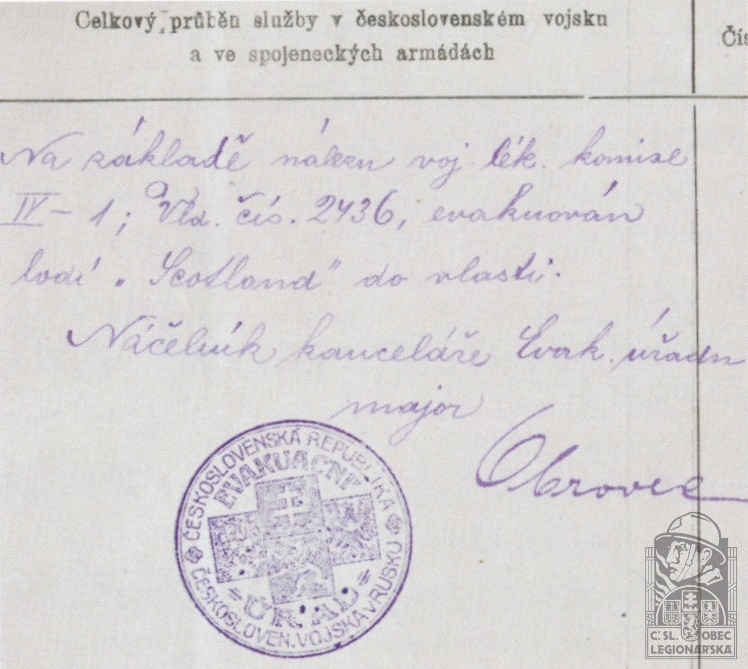 Celkový průběh služby v československém vojsku
a ve spojeneckých armádách
Čís
Na základě nálezu voj. lék. komise
IV – 1; Vld. čís. 2436, evakuován
lodí „Scotland" do vlasti.
Náčelník kanceláře Evak. úřadu
major
ČESKOSLOVENSKÁ REPUBLIKA
EVAKUAČNÍ
ÚŘAD
ČESKOSLOVEN. VOJSKA V RUSKU
Č:SL. OBEC
LEGIONÁŘSKÁ